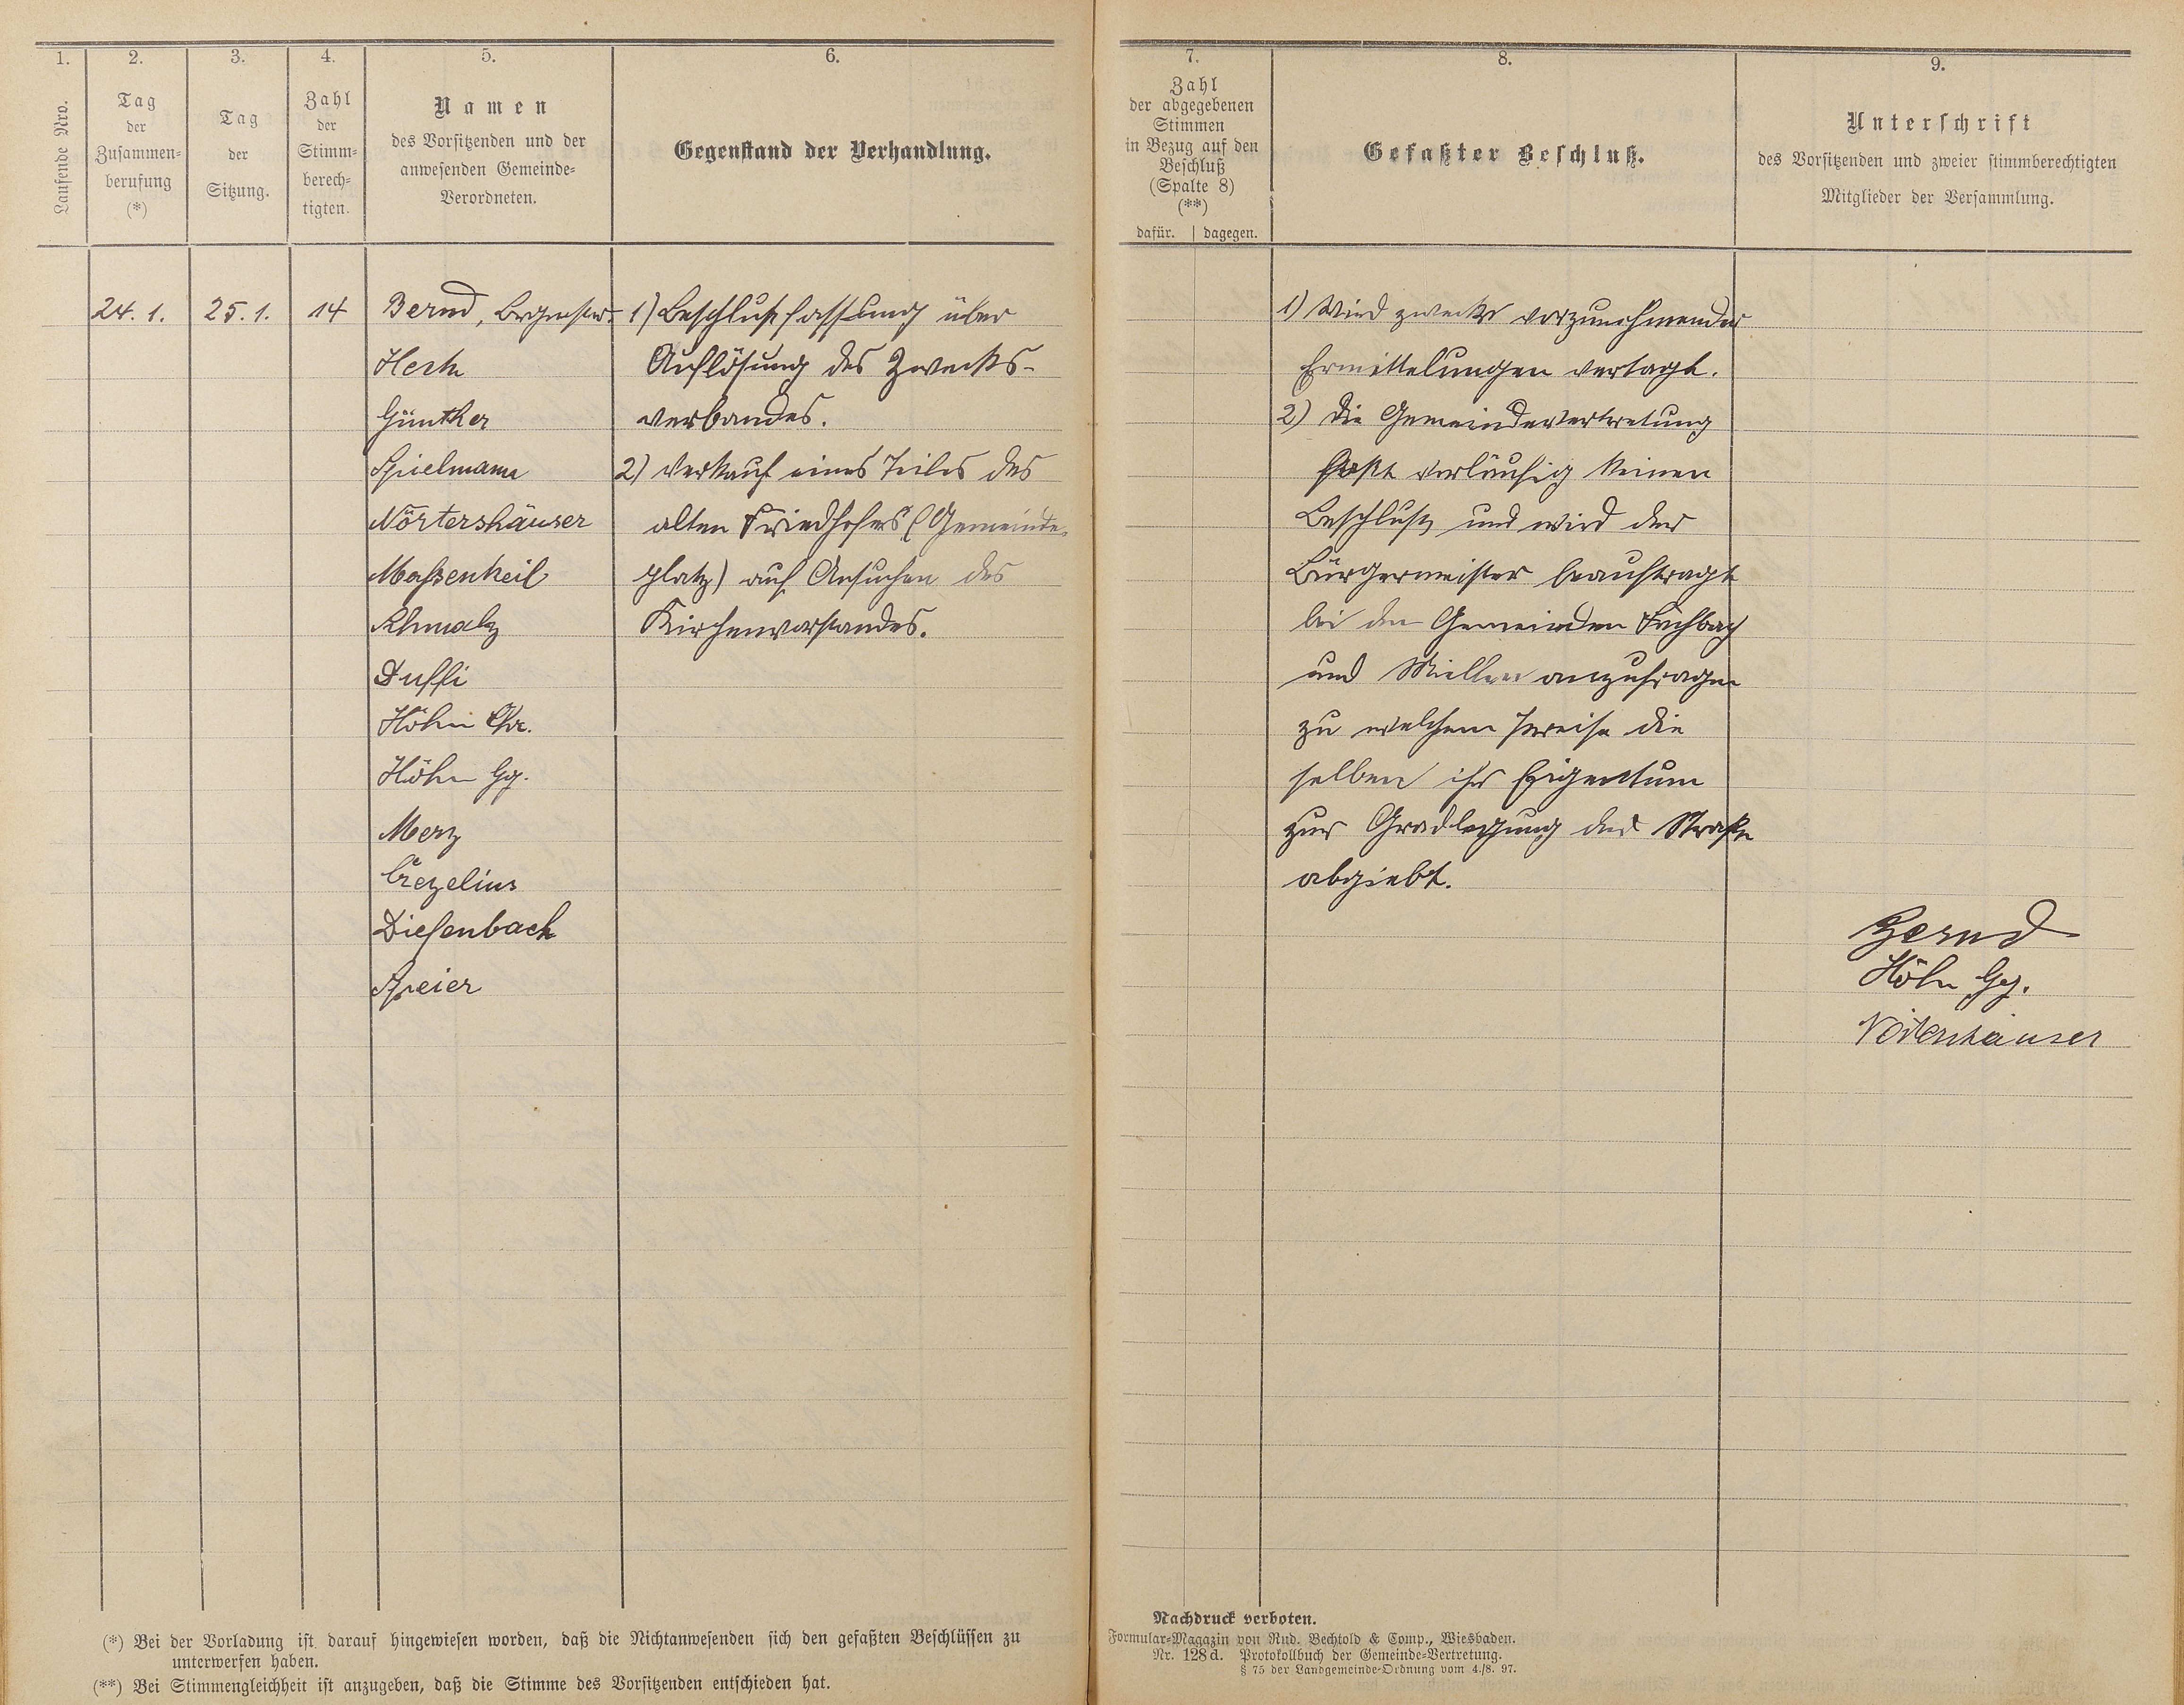 1.
Laufende Nro.
2.
Tag
der
Zusammen-
berufung
(*)
3.
Tag
der
Sitzung.
4.
Zahl
der
Stimm-
berech-
tigten.
5.
Namen
des Vorsitzenden und der
anwesenden Gemeinde-
Verordneten.
6.
Gegenstand der Verhandlung.
7.
Zahl
der abgegebenen
Stimmen
in Bezug auf den
Beschluß
(Spalte 8)
(**)
dafür. | dagegen.
8.
Gefaßter Beschluß.
9.
Unterschrift
des Vorsitzenden und zweier stimmberechtigten
Mitglieder der Versammlung.
24. 1.
25. 1.
14
Bernd, Brgrmstr.
Günther
Spielmann
Nörtershäuser
Maßenkeil
Duffi
Höhn Chr.
Höhn Gg.
Merz
Crezelius
Diefenbach
Speier
1) Beschlußfassung über
Auflösung des Zwecks-
verbandes.
2) Verkauf eines Teiles des
alten Friedhofes (Gemeinde-
platz) auf Ansuchen des
Kirchenvorstandes.
1) Wird zwecks vorzunehmender
Ermittelungen vertagt.
2) Die Gemeindevertretung
faßt vorläufig keinen
Beschluß und wird der
Bürgermeister beauftragt
bei den Gemeinden Fachbach
und Miellen anzufragen
zu welchem Preise die
selben ihr Eigentum
zur Gradlegung der Straße
abgiebt.
Bernd
Höhn Gg.
Nörtershäuser
(*) Bei der Vorladung ist darauf hingewiesen worden, daß die Nichtanwesenden sich den gefaßten Beschlüssen zu
unterwerfen haben.
(**) Bei Stimmengleichheit ist anzugeben, daß die Stimme des Vorsitzenden entschieden hat.
Nachdruck verboten.
Formular-Magazin von Rud. Bechtold & Comp., Wiesbaden.
Nr. 128 d. Protokollbuch der Gemeinde-Vertretung.
§ 75 der Landgemeinde-Ordnung vom 4./8. 97.